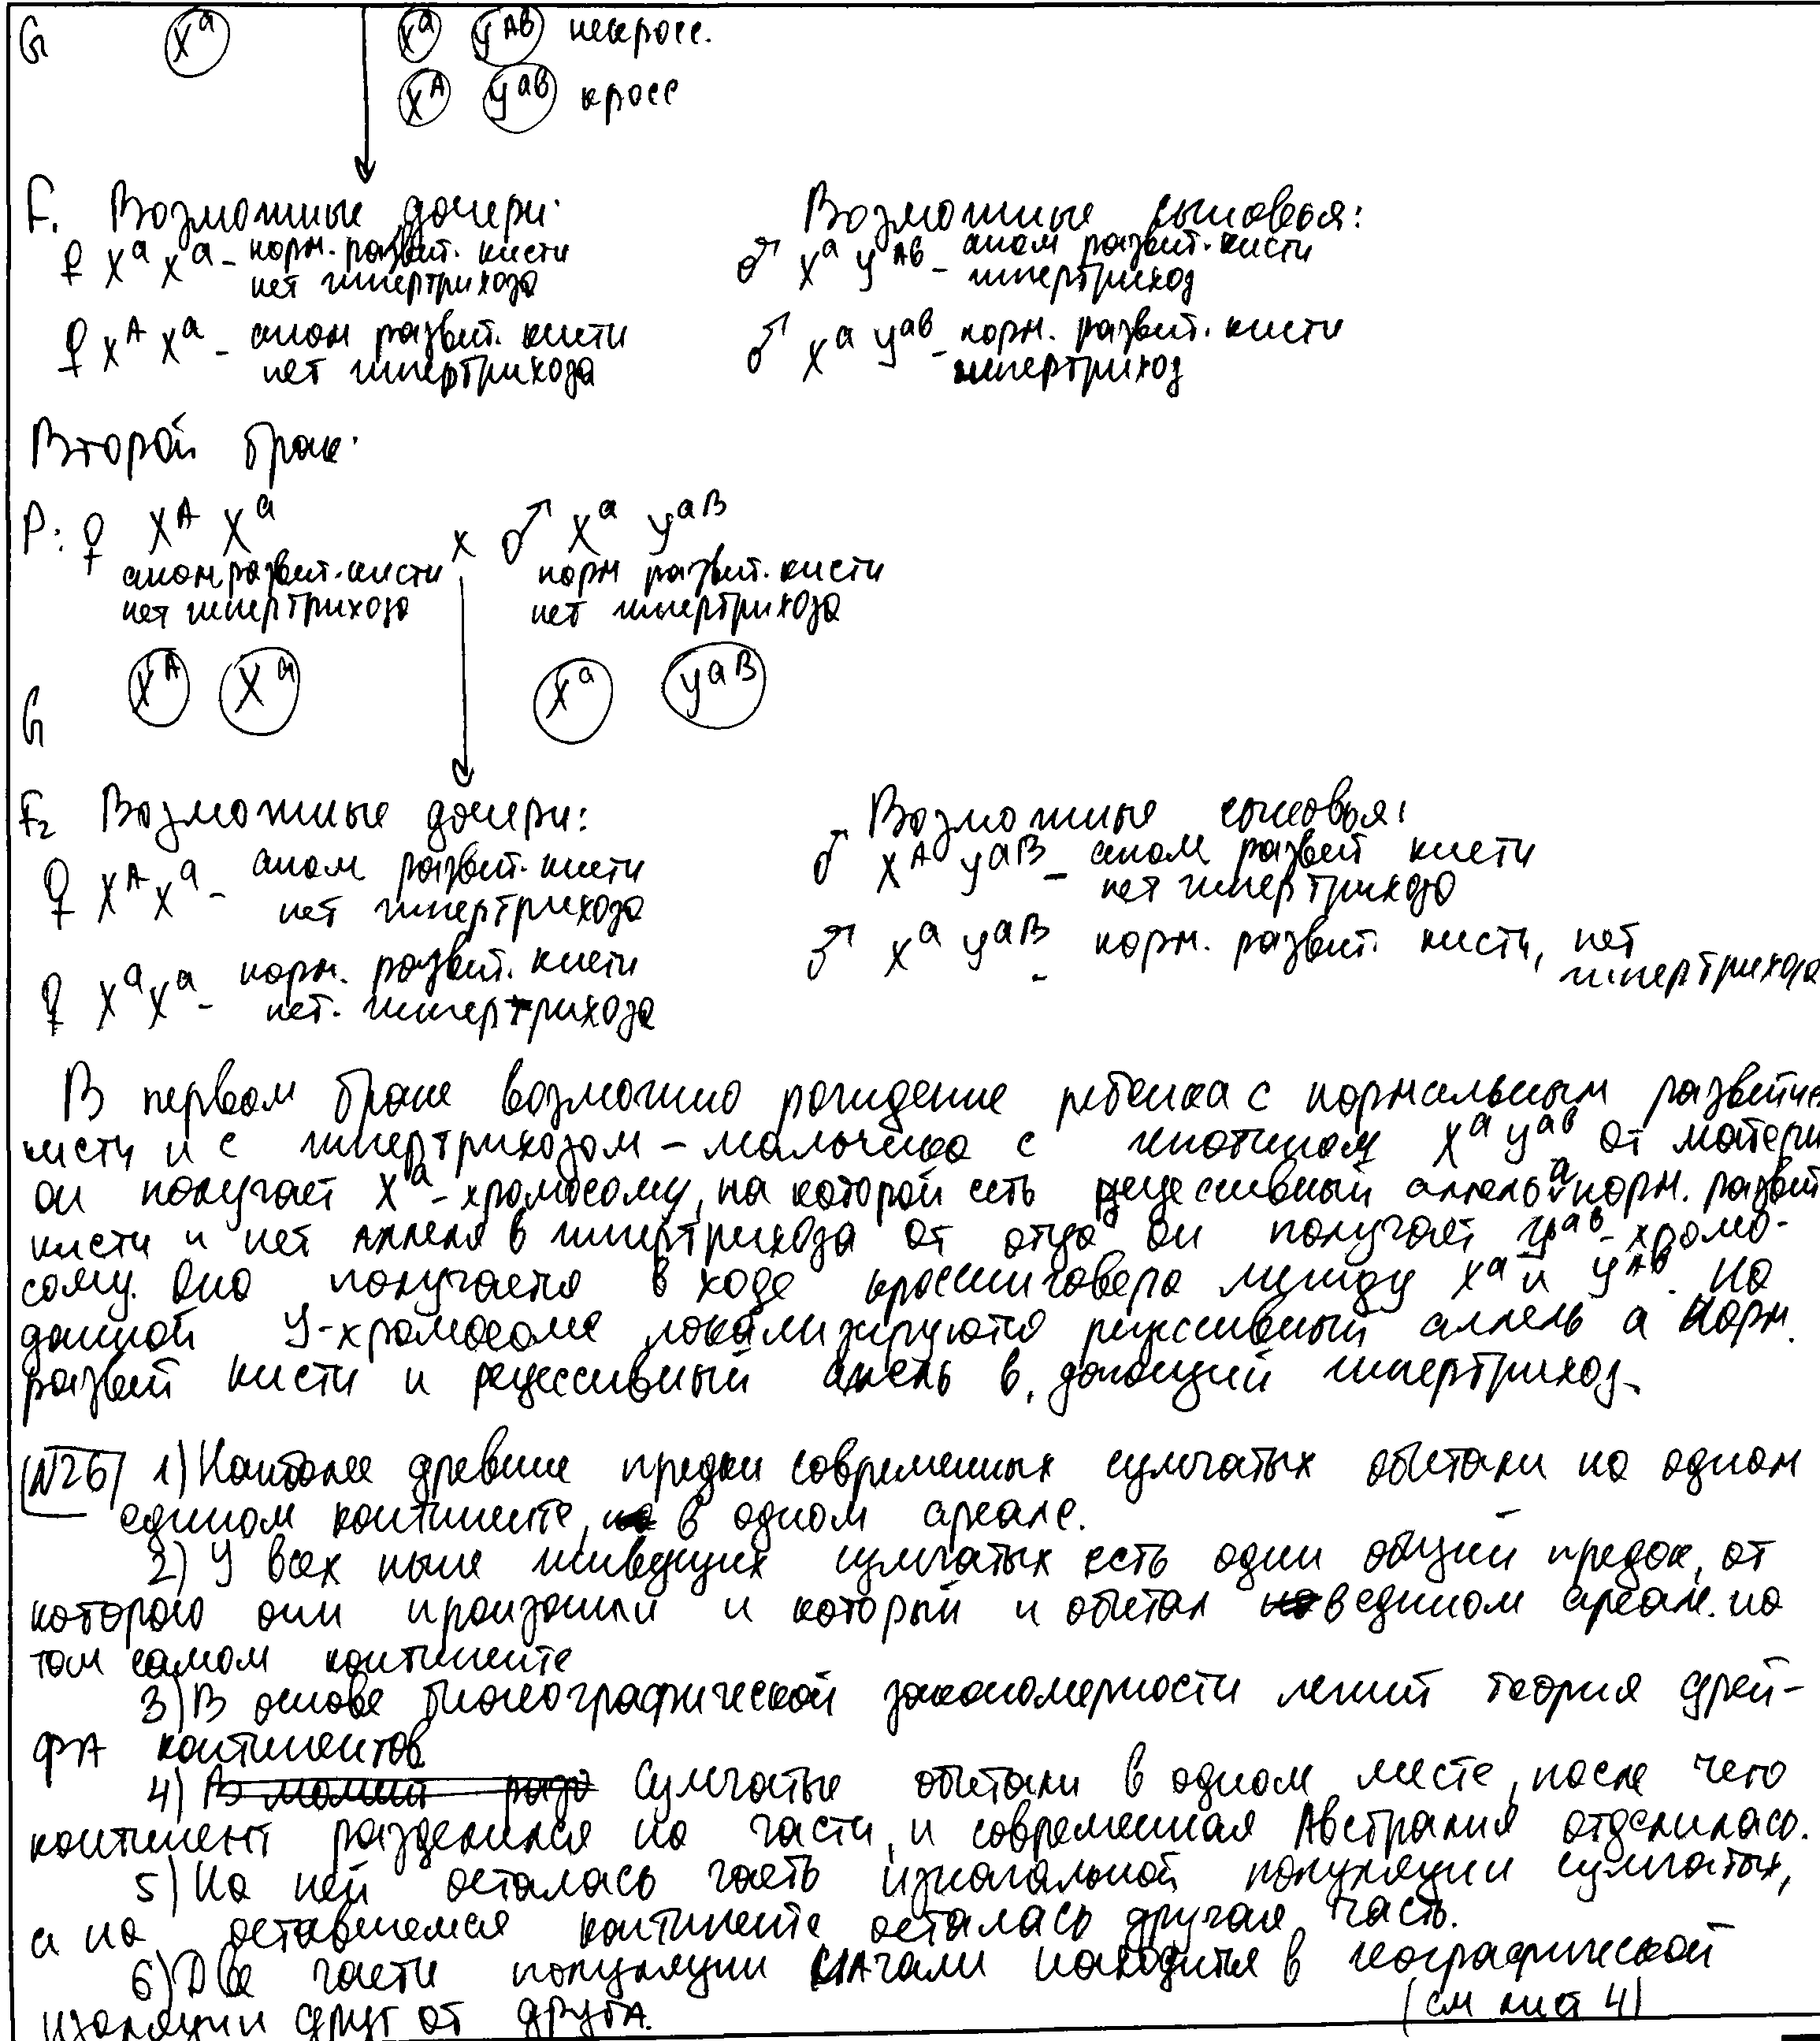 G X^a X^a У^АВ некросс.
X^A У^ав кросс
F₁ Возможные дочери: Возможные сыновья:
♀ X^a X^a - норм. развит. кисти ♂ X^a У^Ав - аном развит. кисти
нет гипертрихоза гипертрихоз
♀ X^A X^a - аном развит. кисти ♂ X^a У^ав - норм. развит. кисти
нет гипертрихоза гипертрихоз
Второй брак:
P: ♀ X^A X^a x ♂ X^a У^аВ
аном развит. кисти норм развит. кисти
нет гипертрихоза нет гипертрихоза
G X^A X^a X^a У^аВ
F₂ Возможные дочери: Возможные сыновья:
♀ X^A X^a - аном развит. кисти ♂ X^A У^аВ - аном развит кисти
нет гипертрихоза нет гипертрихоза
♀ X^a X^a - норм. развит. кисти ♂ X^a У^аВ - норм. развит. кисти, нет
нет. гипертрихоза гипертрихоза
В первом браке возможно рождение ребенка с нормальным развитием
кисти и с гипертрихозом - мальчика с генотипом X^a У^ав от матери
он получает X^a - хромосому, на которой есть рецессивный аллель а норм. развит
кисти и нет аллеля в гипертрихоза от отца он получает У^ав - хромо-
сому. Она получается в ходе кроссинговера между X^a и У^Ав. На
данной У-хромосоме локализируются рецессивный аллель а норм.
развит кисти и рецессивный аллель в, дающий гипертрихоз.
N26 1) Наиболее древние предки современных сумчатых обитали на одном
едином континенте, в одном ареале.
2) У всех ныне живущих сумчатых есть один общий предок, от
которого они произошли и который и обитал в едином ареале. на
том самом континенте
3) В основе биогеографической закономерности лежит теория дрей-
фА континентов
4) Сумчатые обитали в одном месте, после чего
континент разделился на части, и современная Австралия отделилась.
5) На ней осталась часть изначальной популяции сумчатых,
а на оставшемся континенте осталась другая часть.
6) Две части популяции нАчали находится в географической
изоляции друг от другА. (см лист 4)